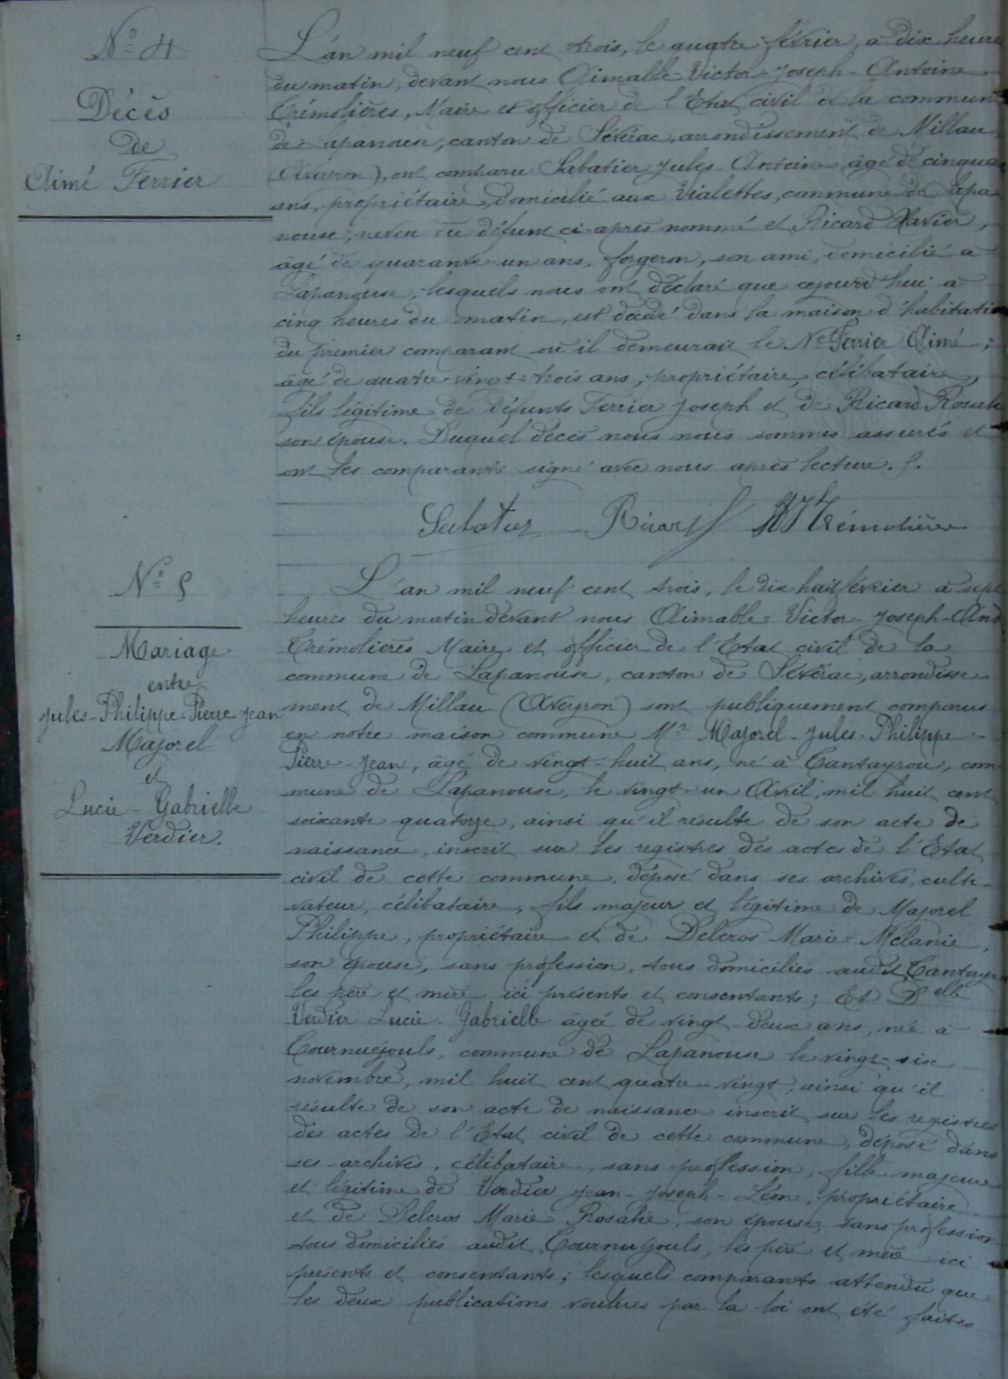 N° 4
Décès
de
Aimé Ferrier
L'an mil neuf cent trois, le quatre février, à dix heures
du matin, devant nous Aimable-Victor-Joseph-Antoine
Trémolières, Maire et officier de l'Etat civil de la commune
de Lapanouse, canton de Sévérac, arrondissement de Millau
(Aveyron), ont comparu Sabatier Jules Antoine, âgé de cinquan
ans, propriétaire, domicilié aux Vialettes, commune de Lapa
nouse, neveu du défunt ci-après nommé et Ricard Xavier,
âgé de quarante un ans, forgeron, son ami, domicilié à
Lapanouse, lesquels nous ont déclaré que cejourd'hui à
cinq heures du matin, est décédé dans la maison d'habitatio
du premier comparant où il demeurait le N° Ferrier Aimé,
âgé de quatre-vingt-trois ans, propriétaire, célibataire,
fils légitime de défunts Ferrier Joseph et de Ricard Rosali
son épouse. Duquel décès nous nous sommes assurés et
ont les comparants signé avec nous après lecture.
Sabatier Ricard Trémolières
N° 5
Mariage
entre
Jules-Philippe-Pierre-Jean
Majorel
et
Lucie-Gabrielle
Verdier.
L'an mil neuf cent trois, le dix huit février à sept
heures du matin devant nous Aimable-Victor-Joseph-Ant
Trémolières Maire et officier de l'Etat civil de la
commune de Lapanouse, canton de Sévérac, arrondisse
ment de Millau (Aveyron) sont publiquement comparus
en notre maison commune Mr Majorel-Jules-Philippe-
Pierre-Jean, âgé de vingt-huit ans, né à Cantayrou, com-
mune de Lapanouse, le vingt-un Avril, mil huit cent
soixante quatorze, ainsi qu'il résulte de son acte de
naissance, inscrit sur les registres des actes de l'Etat
civil de cette commune, déposé dans ses archives, culti-
vateur, célibataire, fils majeur et légitime de Majorel
Philippe, propriétaire et de Delcros Marie-Mélanie,
son épouse, sans profession, tous domiciliés audit Cantayr
les père et mère ici présents et consentants; Et Delle
Verdier Lucie-Gabrielle âgée de vingt-deux ans, née à
Cournuéjouls, commune de Lapanouse le vingt-six
novembre, mil huit cent quatre-vingt, ainsi qu'il
résulte de son acte de naissance inscrit sur les registres
des actes de l'Etat civil de cette commune, déposé dans
ses archives, célibataire, sans profession, fille majeure
et légitime de Verdier Jean-Joseph-Léon, propriétaire
et de Delcros Marie Rosalie, son épouse, sans profession
tous domiciliés audit Cournuéjouls, les père et mère ici
présents et consentants; lesquels comparants attendu que
les deux publications voulues par la loi ont été faites